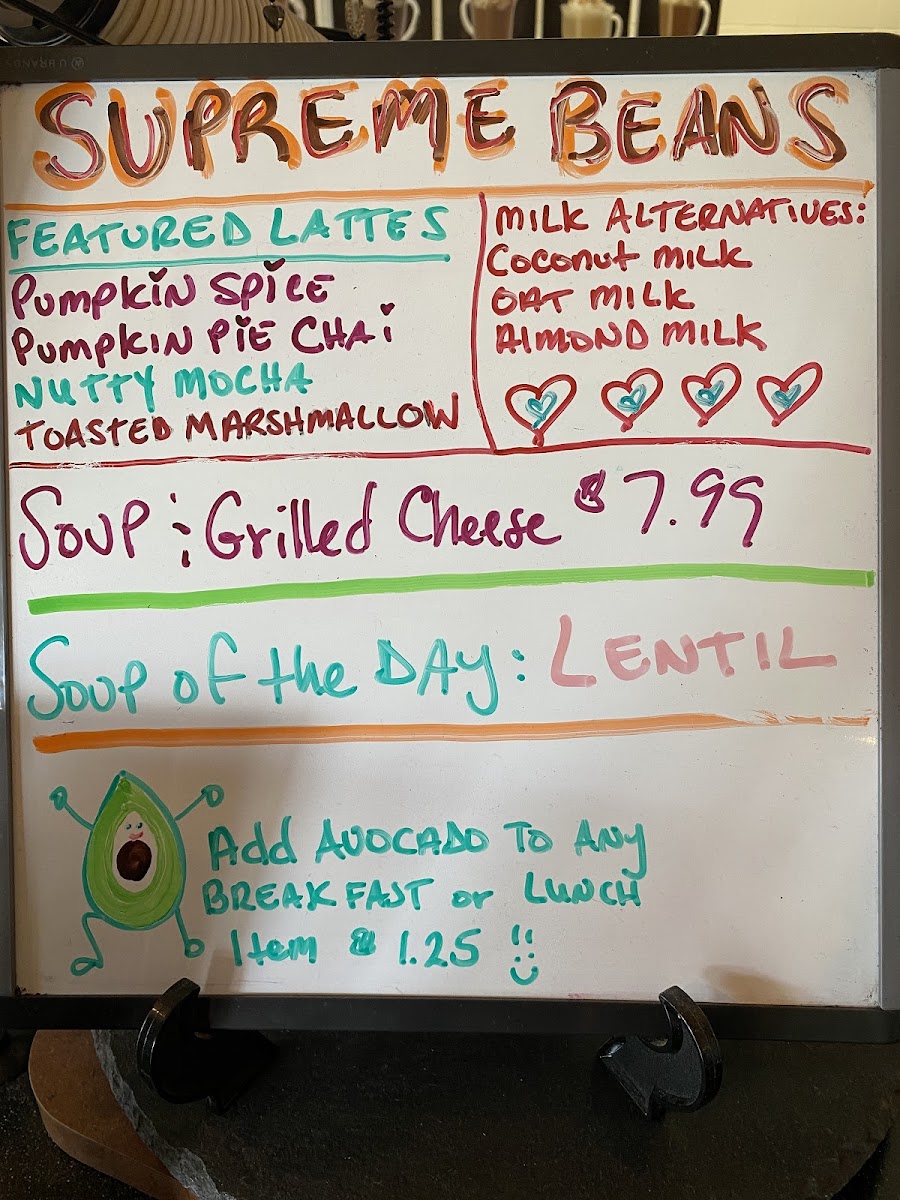 U BRANDS
SUPREME BEANS
FEATURED LATTES
PUMPKIN SPICE
PUMPKIN PIE CHAI
NUTTY MOCHA
TOASTED MARSHMALLOW
MILK ALTERNATIVES:
COCONUT MILK
OAT MILK
ALMOND MILK
Soup : Grilled Cheese $7.99
Soup of the DAY: LENTIL
Add AVOCADO TO ANY
BREAKFAST or LUNCH
Item $1.25 !!